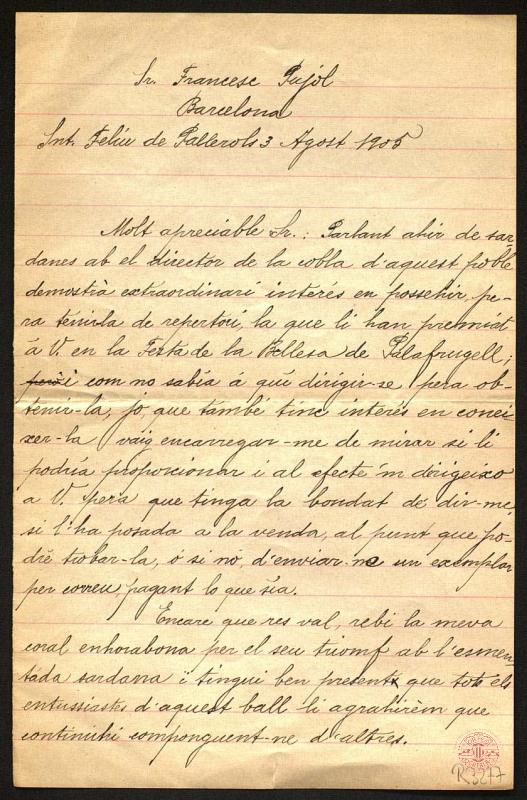 Sr. Francesc Pujól
Barcelona
Snt. Feliu de Pallerols 3 Agost 1905
Molt apreciable Sr.: Parlant ahir de sar-
danes ab el director de la cobla d'aquest poble
demostrà extraordinari interés en possehir, pe-
ra tenirla de repertori, la que li han premiat
á V. en la Festa de la Bellesa de Palafrugell;
però i com no sabía á qui dirigir-se pera ob-
tenir-la, jo que també tinc interés en conei-
xer-la vaig encarregar-me de mirar si li
podría proporcionar i al efecte 'm dirigeixo
a V. pera que tinga la bondat de dir-me,
si l'ha posada a la venda, al punt que po-
dré trobar-la, ó si nó, d'enviar-ne un exemplar
per correu, pagant lo que sía.
Encare que res val, rebi la meva
coral enhorabona per el seu triomf ab l'esmen-
tada sardana i tingui ben present que tots els
entussiastes d'aquest ball li agrahirém que
continuhi componguent-ne d'altres.
R3277